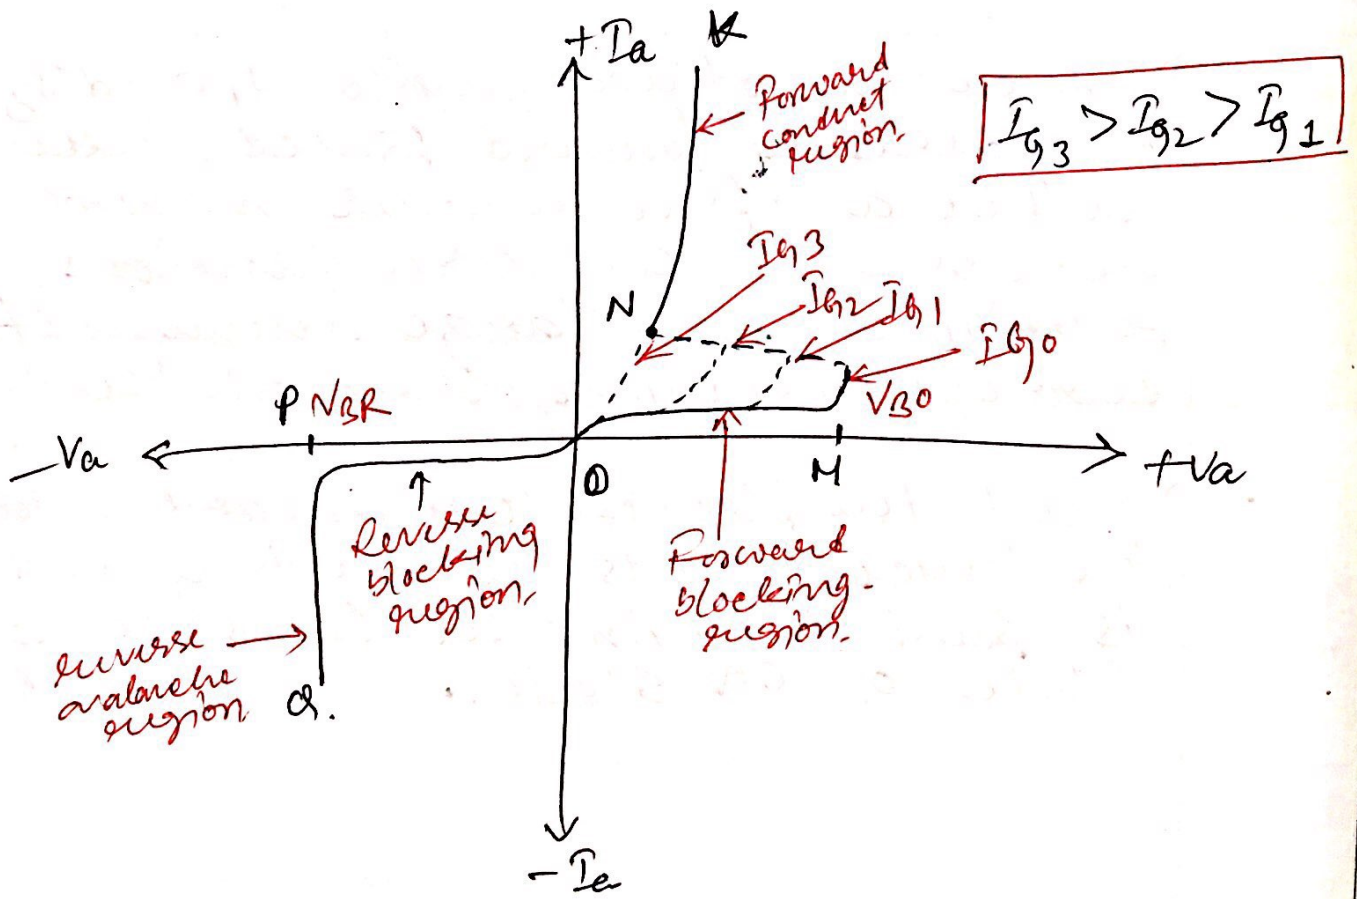 +Ia K
Forward
conduct
region.
Ig3 > Ig2 > Ig1
Ig3
N Ig2 Ig1
Ig0
P VBR
VBO
-Va O M +Va
Reverse
blocking
region.
Forward
blocking
region.
reverse
avalanche
region
Q.
- Ia